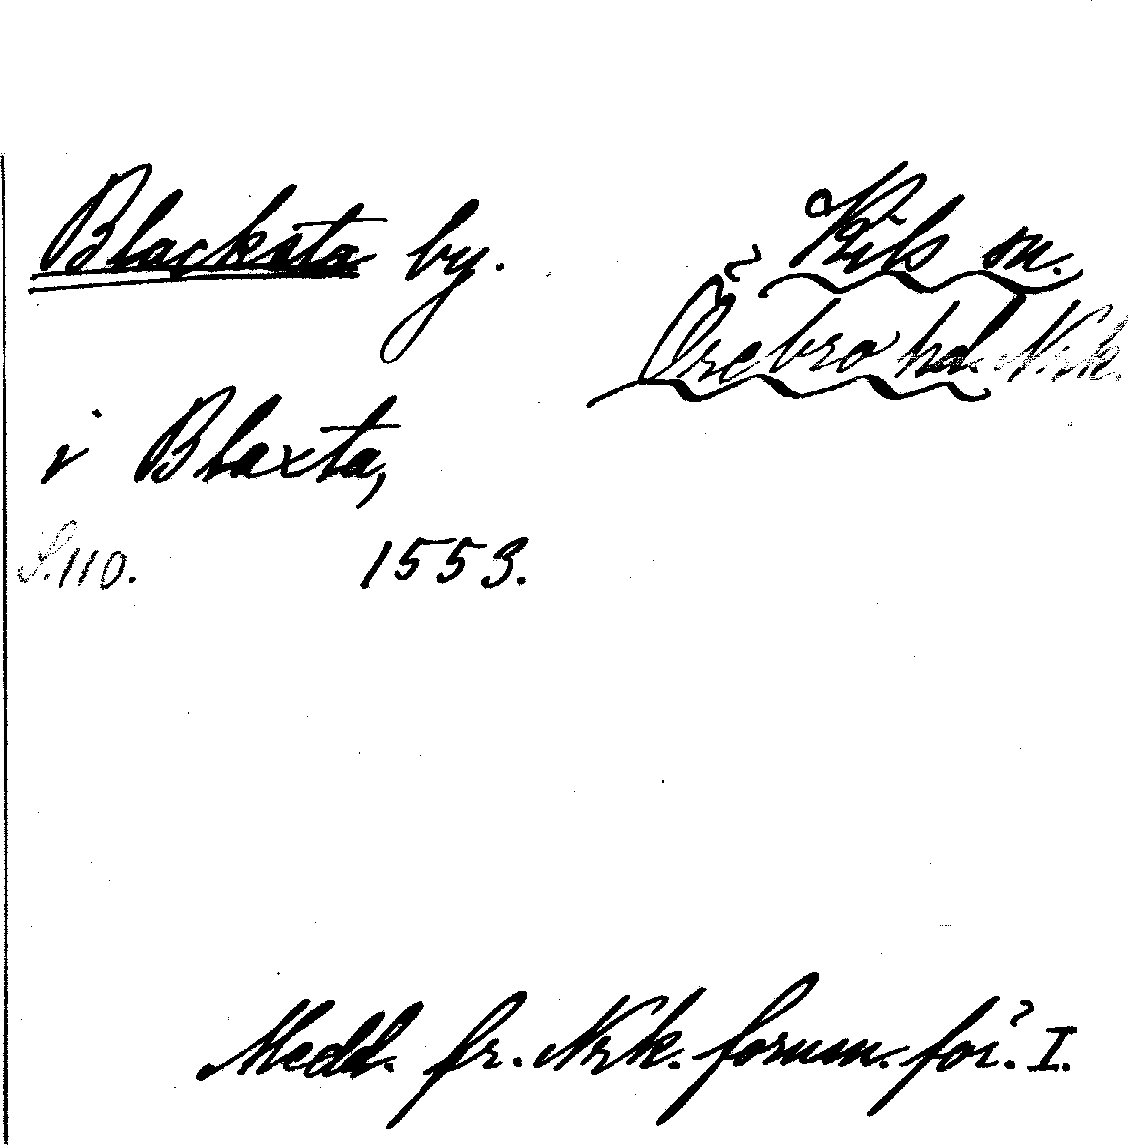 Blacksta by. Kils sn.
Örebro hd. Nrk.
i Blaxta,
S. 110. 1553.
Medd. fr. Nrk. fornm. för. I.